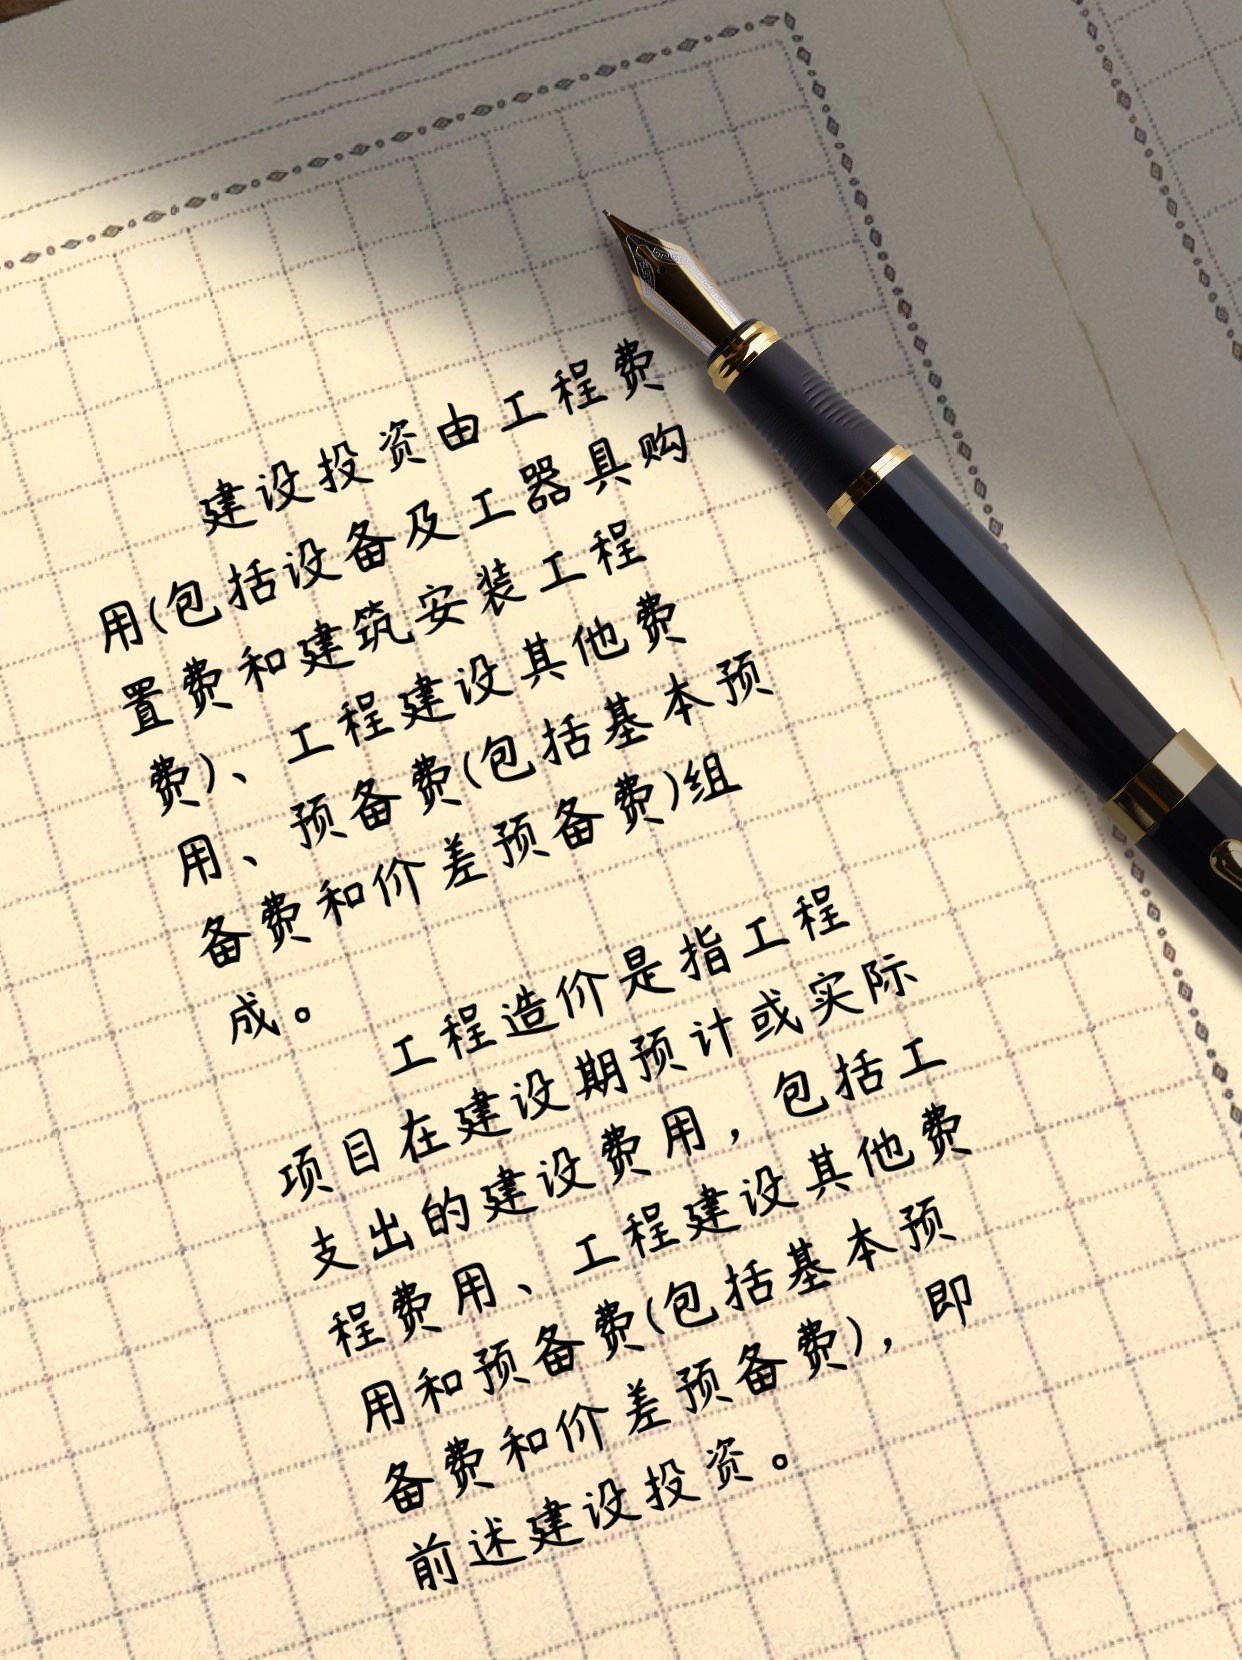 建设投资由工程费
用(包括设备及工器具购
置费和建筑安装工程
费)、工程建设其他费
用、预备费(包括基本预
备费和价差预备费)组
成。
工程造价是指工程
项目在建设期预计或实际
支出的建设费用，包括工
程费用、工程建设其他费
用和预备费(包括基本预
备费和价差预备费)，即
前述建设投资。